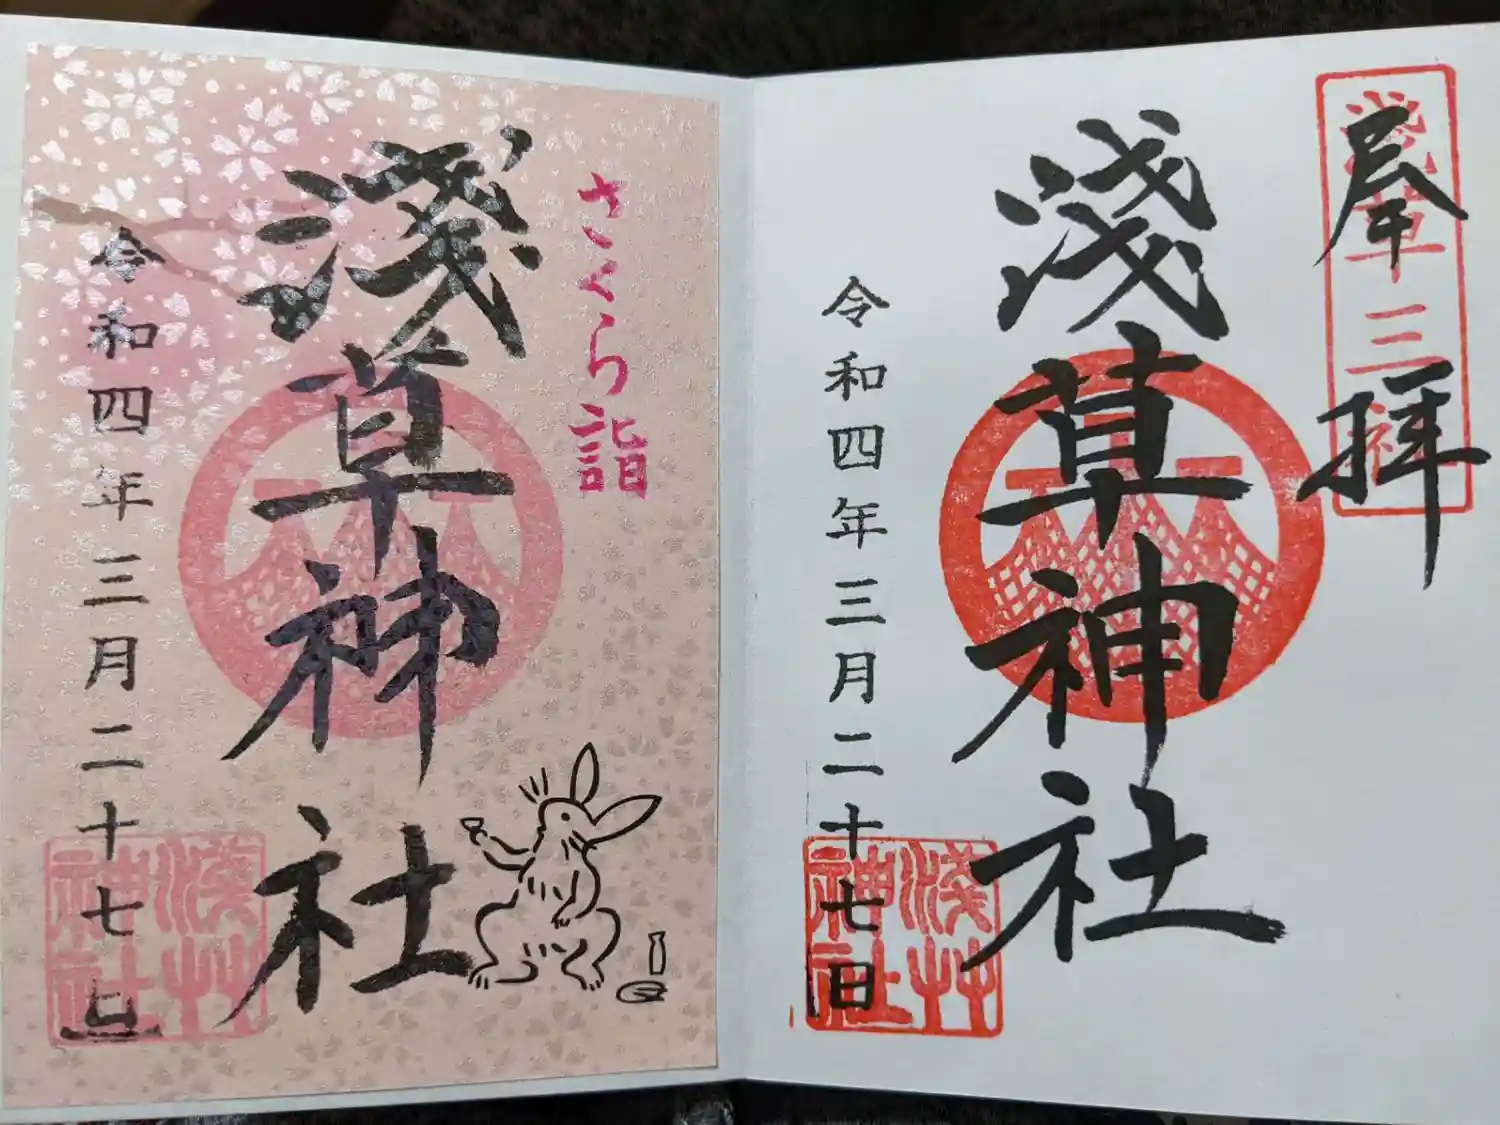 奉拝
浅草三社
淺草神社
令和四年三月二十七日
淺草神社
さくら詣
淺草神社
令和四年三月二十七日
淺草神社